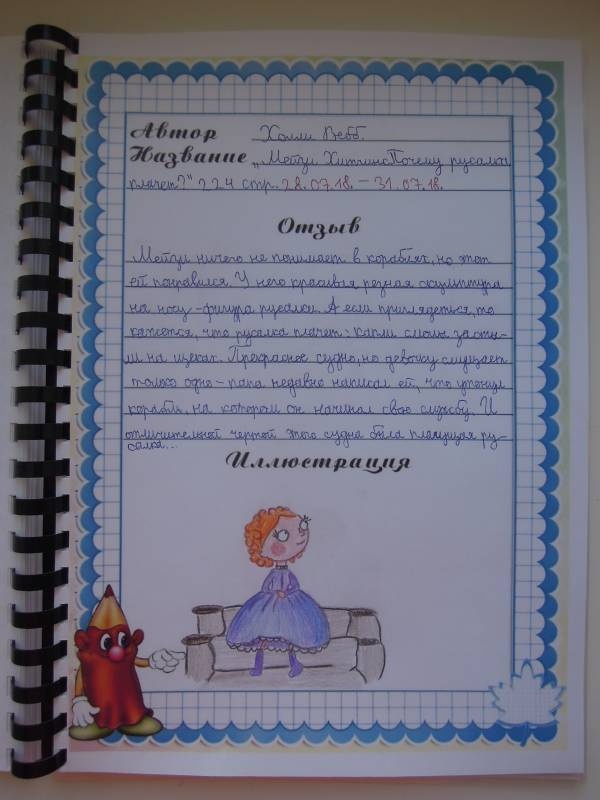 Автор Холли Вебб.
Название „Мейзи Хитчинс Почему русалка
плачет?" 224 стр. 28.07.18. – 31.07.18.
Отзыв
Мейзи ничего не понимает в кораблях, но этот
ей понравился. У него красивая резная скульптура
на носу – фигура русалки. А если приглядеться, то
кажется, что русалка плачет: капли смолы засты-
ли на щеках. Прекрасное судно, но девочку смущает
только одно – папа недавно написал ей, что утонул
корабль, на котором он начинал свою службу. И
отличительной чертой этого судна была плачущая ру-
салка...
Иллюстрация